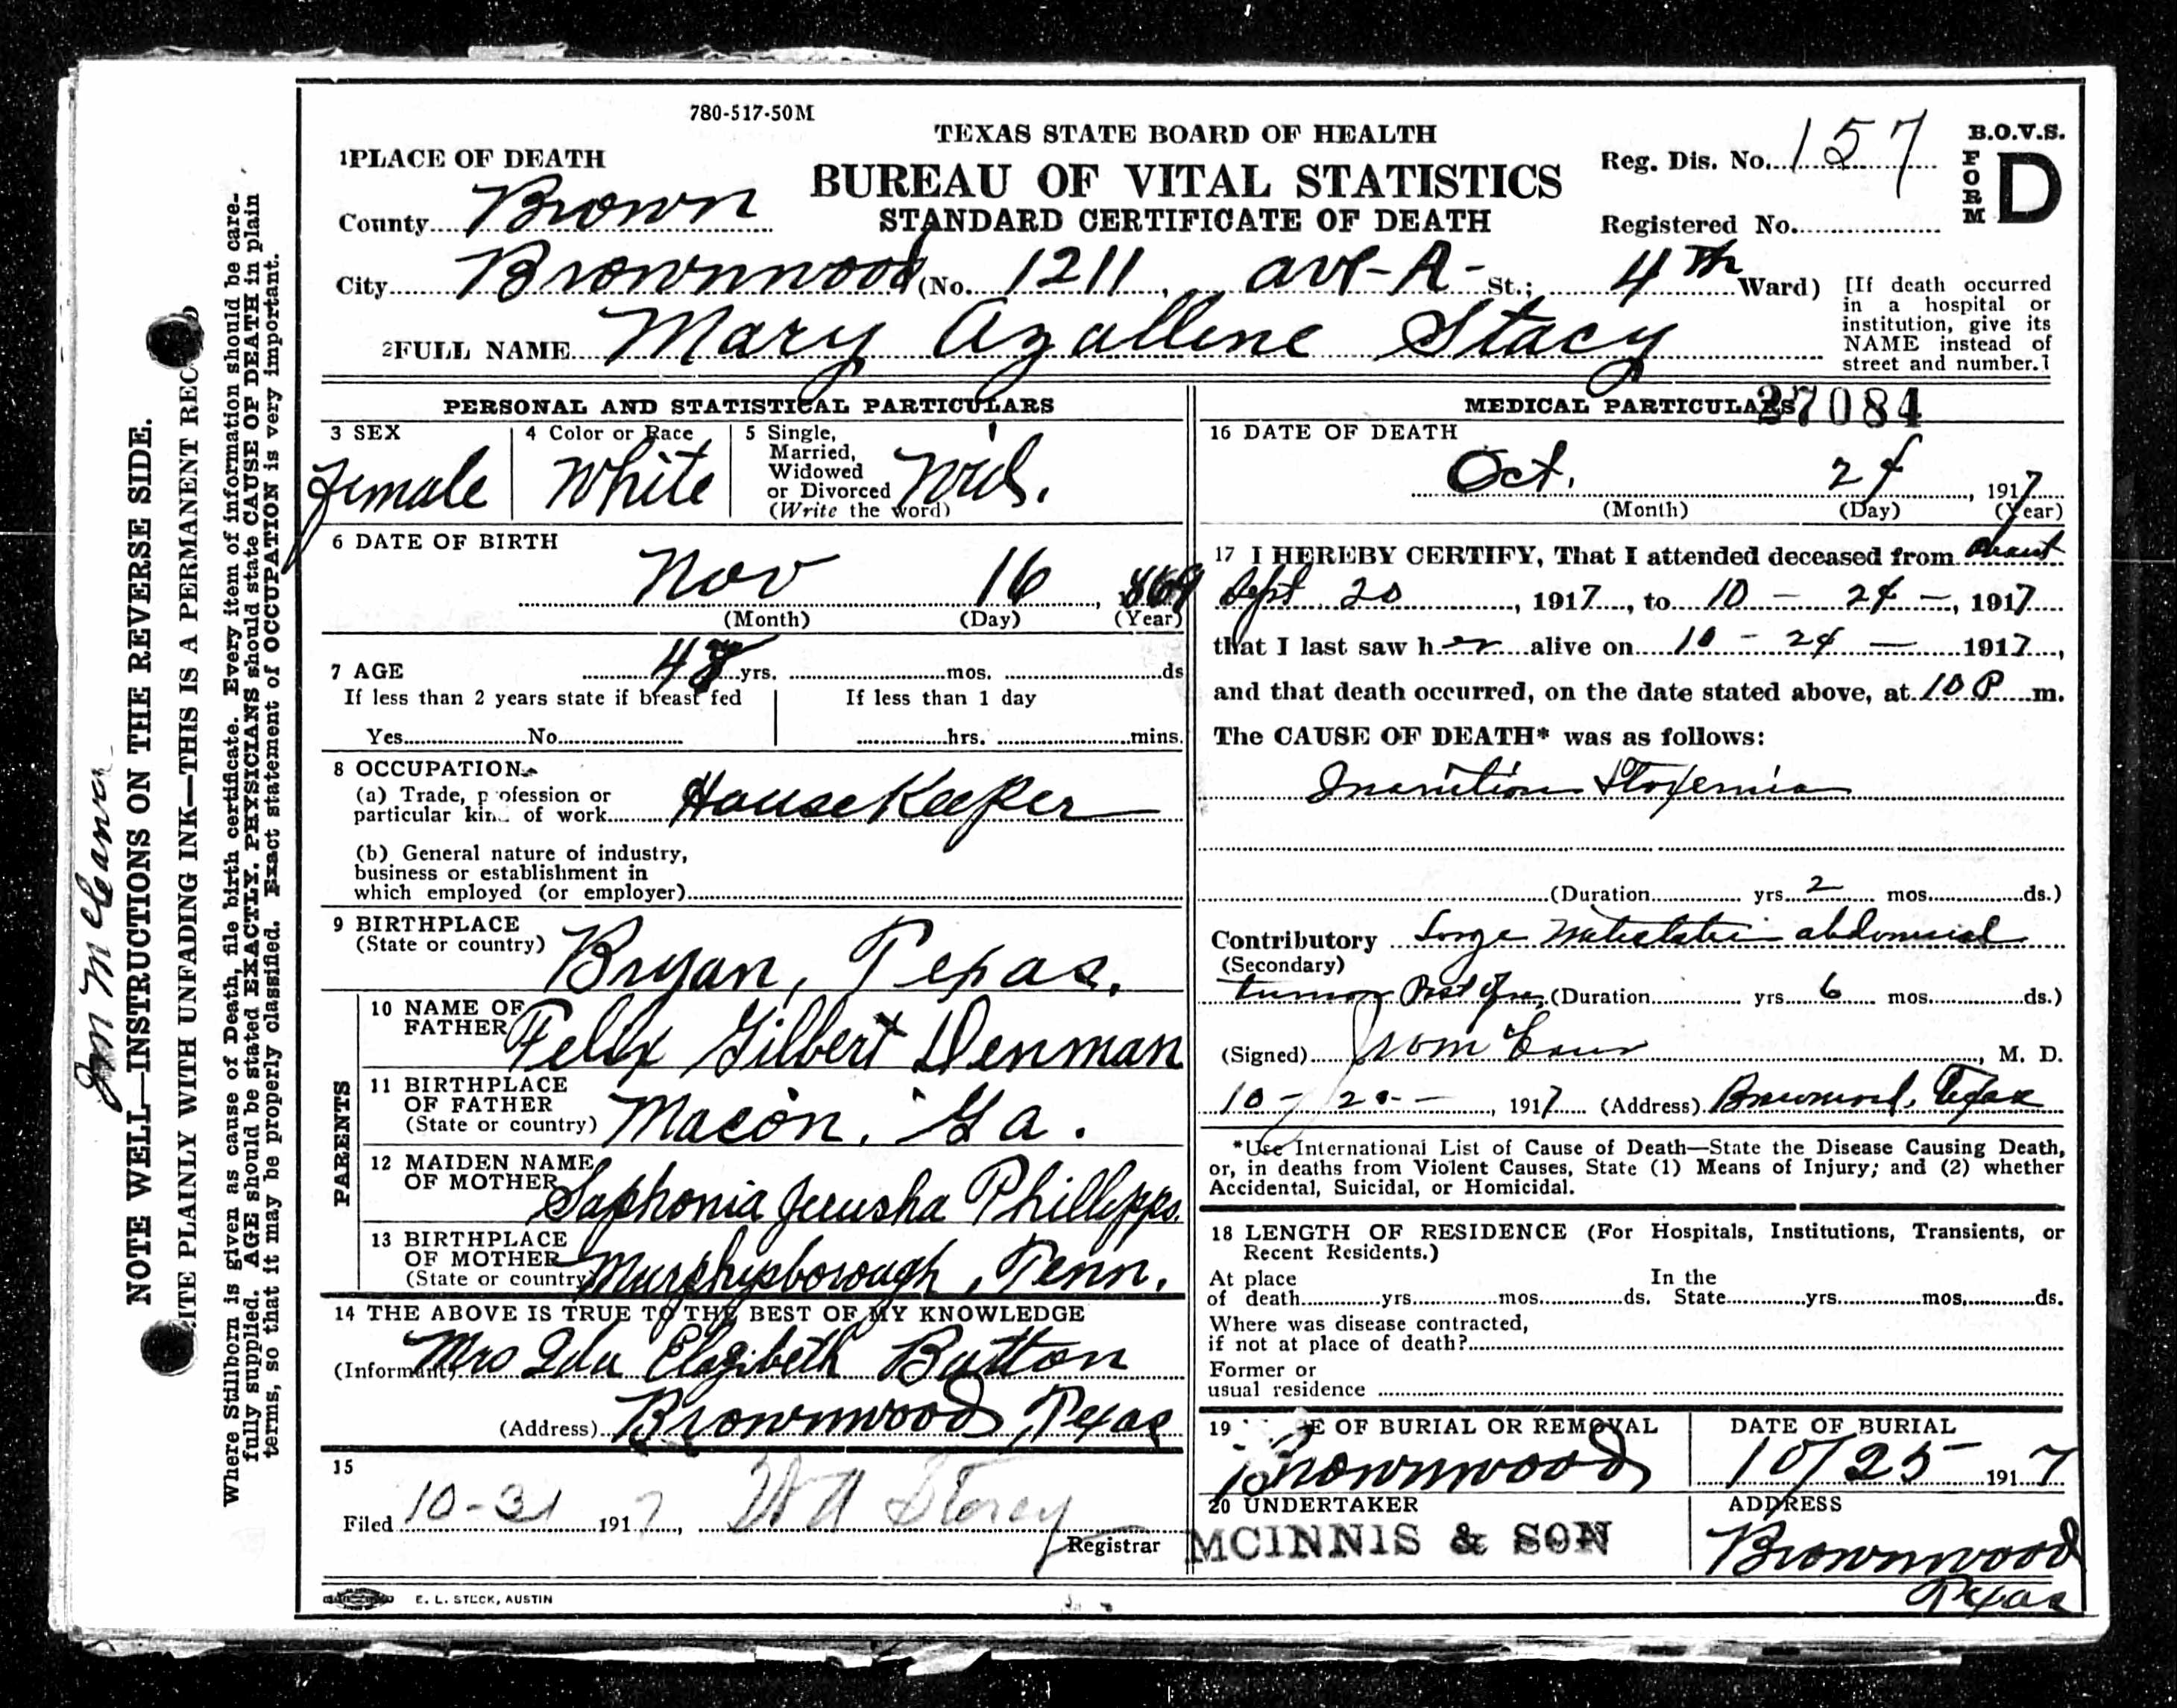 780-517-50M
TEXAS STATE BOARD OF HEALTH
BUREAU OF VITAL STATISTICS
STANDARD CERTIFICATE OF DEATH
Reg. Dis. No. 157
Registered No.
B.O.V.S.
FORM D
1 PLACE OF DEATH
County Brown
City Brownwood (No. 1211, ave-A- St.; 4th Ward)
[If death occurred
in a hospital or
institution, give its
NAME instead of
street and number.]
2 FULL NAME Mary Azallene Stacy
PERSONAL AND STATISTICAL PARTICULARS
3 SEX
female
4 Color or Race
White
5 Single,
Married,
Widowed
or Divorced
(Write the word)
Wid.
6 DATE OF BIRTH
Nov 16, 869
(Month) (Day) (Year)
7 AGE 48 yrs. mos. ds
If less than 2 years state if breast fed
Yes No
If less than 1 day
hrs. mins.
8 OCCUPATION
(a) Trade, profession or
particular kind of work House Keeper
(b) General nature of industry,
business or establishment in
which employed (or employer)
9 BIRTHPLACE
(State or country) Bryan, Texas.
PARENTS
10 NAME OF
FATHER Felix Gilbert Denman
11 BIRTHPLACE
OF FATHER
(State or country) Macon, Ga.
12 MAIDEN NAME
OF MOTHER Saphonia Jerusha Phillipps
13 BIRTHPLACE
OF MOTHER
(State or country) Murphysborough, Tenn.
14 THE ABOVE IS TRUE TO THE BEST OF MY KNOWLEDGE
(Informant) Mrs Ida Elazibeth Button
(Address) Brownwood, Texas
15
Filed 10-31 1917, W A Storey
Registrar
E. L. STECK, AUSTIN
MEDICAL PARTICULARS
27084
16 DATE OF DEATH
Oct. 24, 1917
(Month) (Day) (Year)
17 I HEREBY CERTIFY, That I attended deceased from about
Sept 20, 1917, to 10 - 24 -, 1917
that I last saw her alive on 10 - 24 - 1917,
and that death occurred, on the date stated above, at 10 P m.
The CAUSE OF DEATH* was as follows:
Inanition & Toxemia
(Duration yrs 2 mos ds.)
Contributory Large abdominal
(Secondary)
tumor (Duration yrs 6 mos ds.)
(Signed) , M. D.
10- 1917 (Address) Brownwood, Texas
*Use International List of Cause of Death—State the Disease Causing Death,
or, in deaths from Violent Causes, State (1) Means of Injury; and (2) whether
Accidental, Suicidal, or Homicidal.
18 LENGTH OF RESIDENCE (For Hospitals, Institutions, Transients, or
Recent Residents.)
At place
of death yrs mos ds. In the
State yrs mos, ds.
Where was disease contracted,
if not at place of death?
Former or
usual residence
19 E OF BURIAL OR REMOVAL
Brownwood
DATE OF BURIAL
10/25 1917
20 UNDERTAKER
MCINNIS & SON
ADDRESS
Brownwood
Texas
NOTE WELL—INSTRUCTIONS ON THE REVERSE SIDE.
ITE PLAINLY WITH UNFADING INK—THIS IS A PERMANENT REC D
Where Stillborn is given as cause of Death, file birth certificate. Every item of information should be care-
fully supplied. AGE should be stated EXACTLY. PHYSICIANS should state CAUSE OF DEATH in plain
terms, so that it may be properly classified. Exact statement of OCCUPATION is very important.